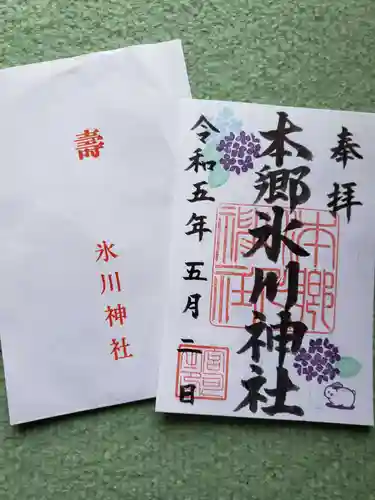 奉拝
本郷氷川神社
令和五年五月二日
壽
氷川神社